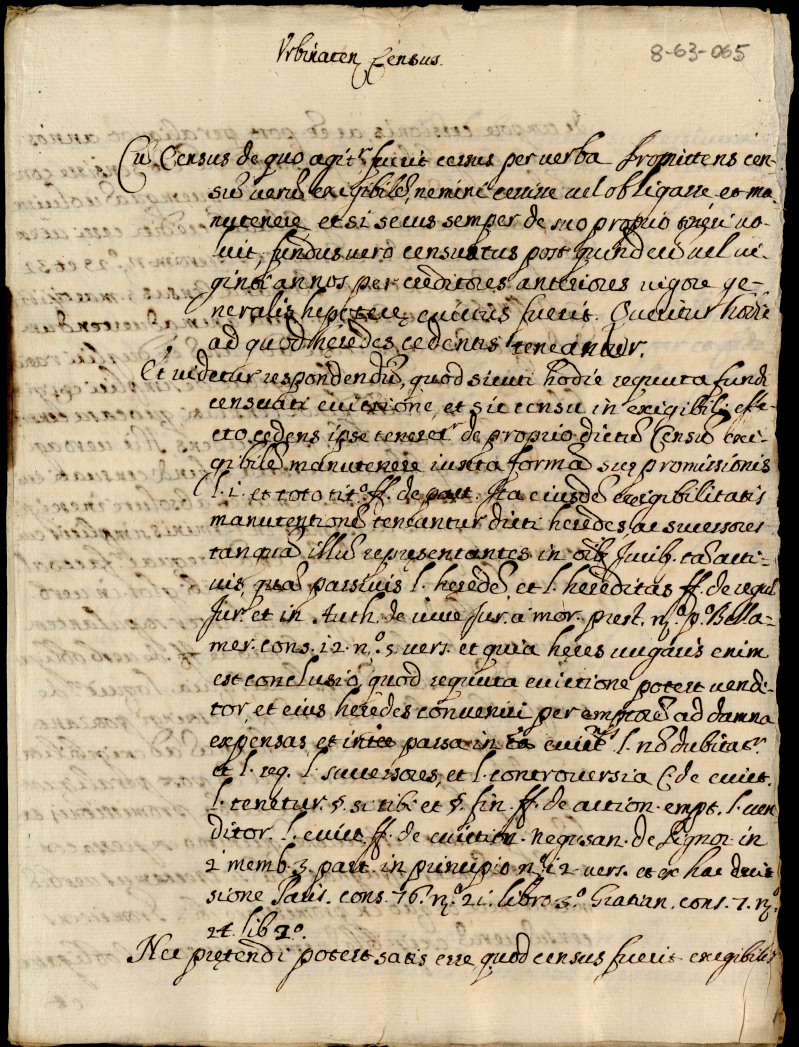 Urbinaten Census.
8-63-065
Cū Census de quo agitr fuerit cessus per verba Promittens cen-
sū verū exigibilē, nemini cessisse vel obligasse et ma-
nutenere et si secus semper de suo proprio vo-
luit, fundus vero censuatus post quindecī vel vi-
ginti annos per creditores anteriores vigore ge-
neralis hepotecę evictus fuerit. Queritur hodie
ad quod hęredes cedentis teneantur.
Et videtur respondendū, quod sicuti hodie sequuta fundi
censuati evictione, et sic censu inexigibili effe-
cto cedens ipse teneretr de proprio dictū Censū exi-
gibilē manutenere iuxta formā suę promissionis
l. i. et toto tito ff. de pact. Ita eiusdē exigibilitatis
manutentionē teneantur dicti heredes, ac successores
tanquā illū representantes in oībs Jurib. tā acti-
vis, quā passivis l. hęredē, et l. hereditas ff. de regul.
Jur. et in Auth. de iure Jur. a mor. prest. no. po. Bella-
mer. cons. 12. no. 5 vers. et quia hęres vulgaris enim
est conclusio, quod sequuta evictione potest vendi-
tor, et eius heredes conveniri per emptorē ad damna
expensas et passa in evictne l. nō dubitatr.
et l. seq. l. successores, et l. controversia C. de evict.
l. tenetur §. si tibi et §. fin. ff. de action. empt. l. ven
ditor. l. evict. ff. de eviction. Negusan. de Pignor. in
2 memb. 3. part. in principio no. 12 vers. et ex hac decis
sione Paris. cons. 76. no. 21. libro 3o. Gratian. cons. 7. no.
24. lib 2o.
Nec pretendi potest satis esse, quod census fuerit exigibilis